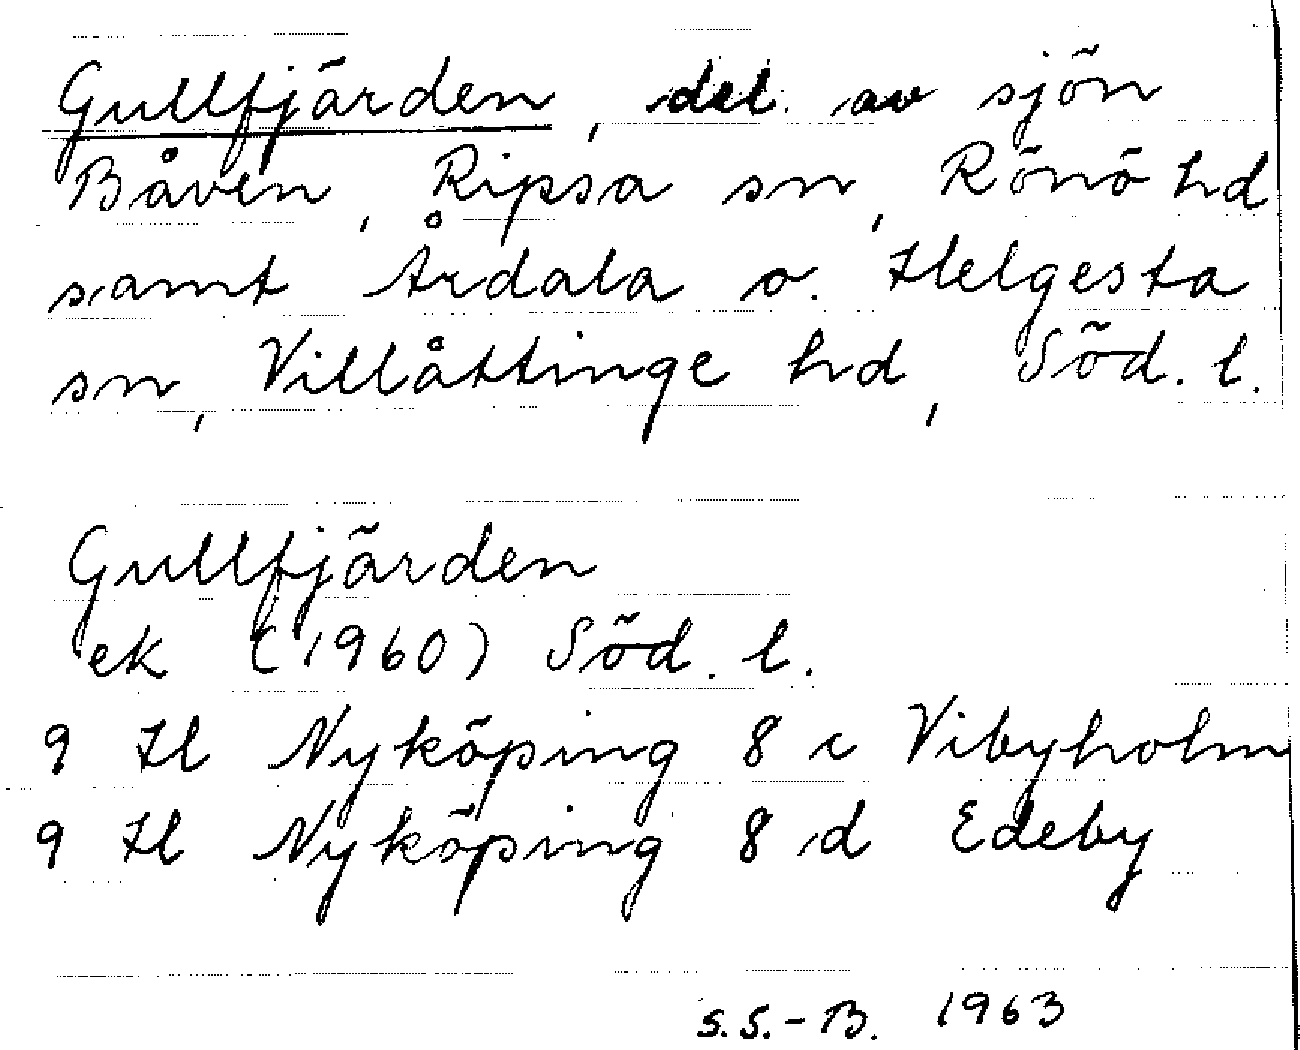 Gullfjärden, del av sjön
Båven, Ripsa sn, Rönö hd
samt Årdala o. Helgesta
sn, Villåttinge hd, Söd. l.
Gullfjärden
ek (1960) Söd. l.
9 H Nyköping 8 c Vibyholm
9 H Nyköping 8 d Edeby
S.S.-B. 1963